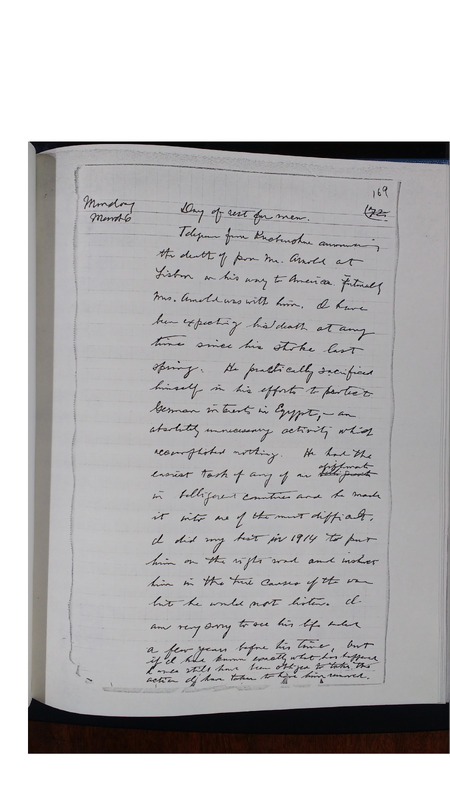 169
Monday
March 6
Day of rest for men.
172
Telegram from announcing
the death of poor Mr. Arnold at
Lisbon on his way to America fortunately
Mrs. Arnold was with him. I have
been expecting his death at any
time since his stroke last
spring. He practically sacrificed
himself in his efforts to protect
German interests in Egypt, - an
absolutely unnecessary activity which
accomplished nothing. He had the
easiest task of any of our diplomats
in belligerent countries and he made
it into one of the most difficult.
I did my best in 1914 to put
him on the right road and instruct
him in the true causes of the war
but he would not listen. I
am very sorry to see his life ended
a few years before his time, but
if I had known exactly what has happened
I once still have been obliged to take the
action I have taken to have him removed.